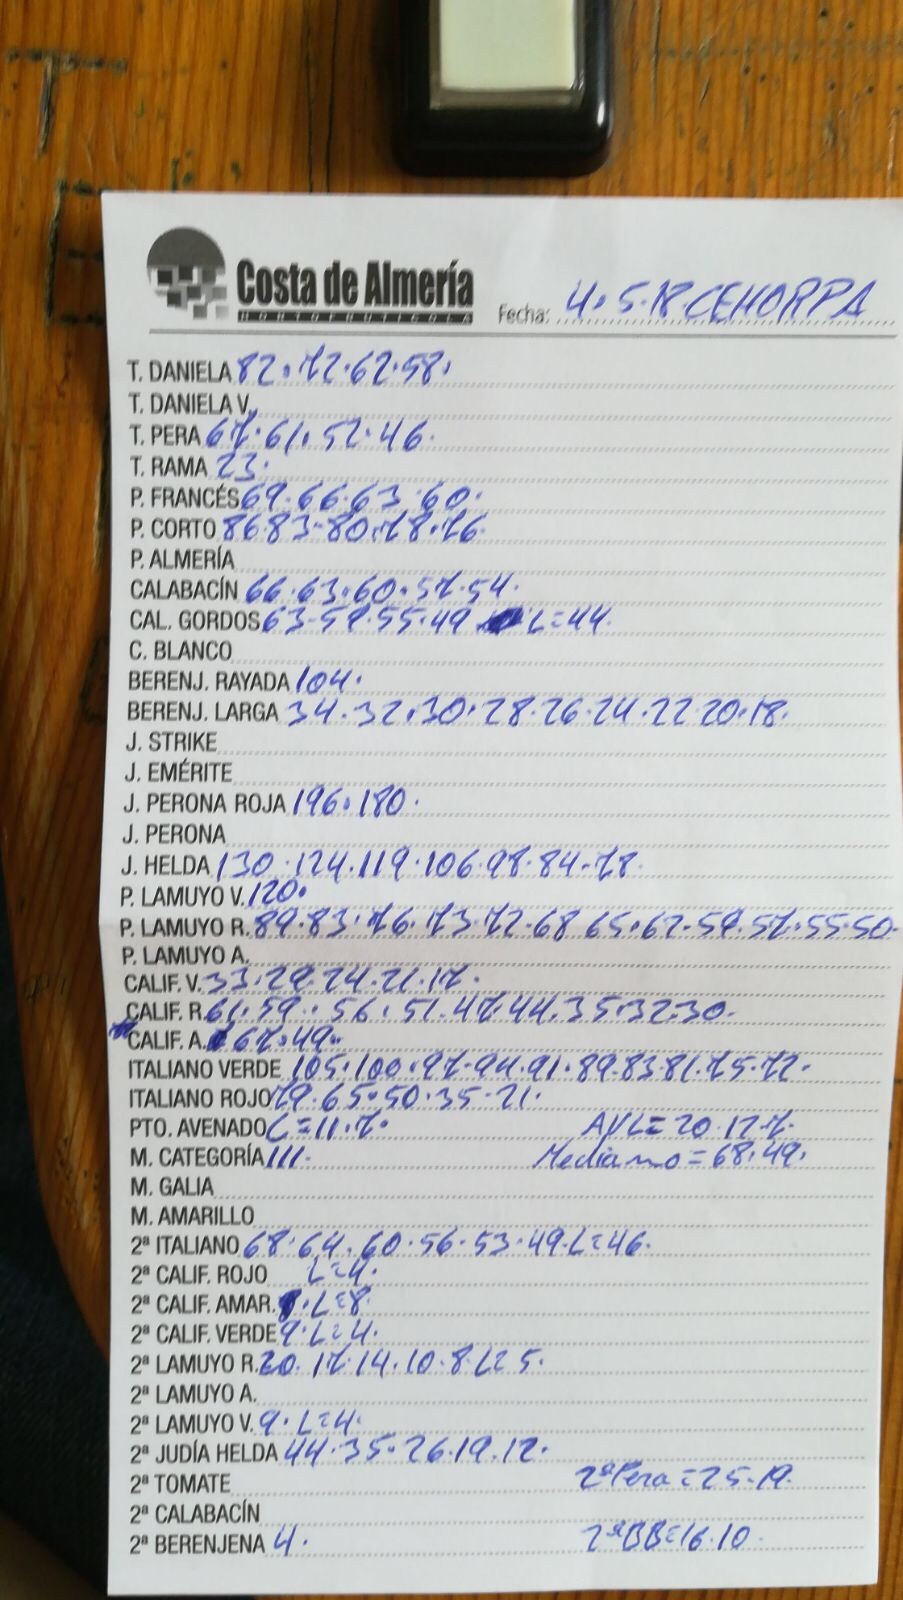 Costa de Almería
HORTOFRUTICOLA
Fecha: 4.5.18 CEHORPA
T. DANIELA 82.72.62.58.
T. DANIELA V.
T. PERA 67.61.52.46.
T. RAMA 23.
P. FRANCÉS 69.66.63.60.
P. CORTO 86.83-80.78.76.
P. ALMERÍA
CALABACÍN 66.63.60.57.54.
CAL. GORDOS 63-59.55.49 L=44.
C. BLANCO
BERENJ. RAYADA 104.
BERENJ. LARGA 34.32.30.28.26.24.22.20.18.
J. STRIKE
J. EMÉRITE
J. PERONA ROJA 196.180.
J. PERONA
J. HELDA 130.124.119.106.98.84-78.
P. LAMUYO V. 120.
P. LAMUYO R. 89.83.76.73.72.68.65.62-59.57.55.50-
P. LAMUYO A.
CALIF. V. 33.29.24.21.17.
CALIF. R. 61.59.56.51.47.44.35.32.30.
CALIF. A. 67.49.
ITALIANO VERDE 105.100.97-94.91.89.83.81.75.72.
ITALIANO ROJO 79.65.50.35-21.
PTO. AVENADO L=11.7. AVL=20.12.7.
M. CATEGORÍA 111. Mediano=68.49.
M. GALIA
M. AMARILLO
2ª ITALIANO 68.64.60.56.53.49.L=46.
2ª CALIF. ROJO L=4.
2ª CALIF. AMAR. L=8.
2ª CALIF. VERDE 9.L=4.
2ª LAMUYO R. 20.17.14.10.8.L=5.
2ª LAMUYO A.
2ª LAMUYO V. 9.L=4.
2ª JUDÍA HELDA 44.35.26.19.12.
2ª TOMATE 2ª Pera=25-19.
2ª CALABACÍN
2ª BERENJENA 4. 2ªBB=16.10.